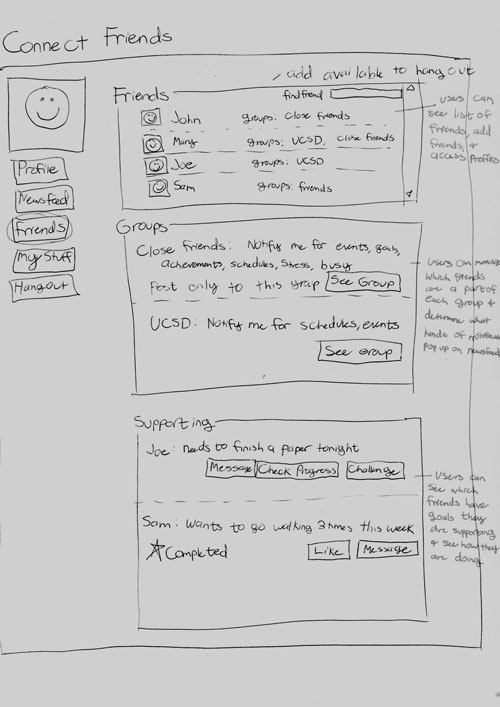 Connect Friends
add available to hang out
Friends
find friend
John groups: close friends
Mary groups: UCSD, close friends
Joe groups: UCSD
Sam groups: friends
users can
see list of
friends, add
friends, &
access profiles
Profile
Newsfeed
Friends
My Stuff
Hangout
Groups
Close friends: Notify me for events, goals,
achievements, schedules, stress, busy
Post only to this group See Group
UCSD: Notify me for schedules, events
See Group
users can manage
which friends
are a part of
each group &
determine what
kinds of notifications
pop up on newsfeed
Supporting
Joe: needs to finish a paper tonight
Message Check Progress Challenge
Sam: Wants to go walking 3 times this week
Completed Like Message
Users can
see which
friends have
goals they
are supporting
& see how they
are doing